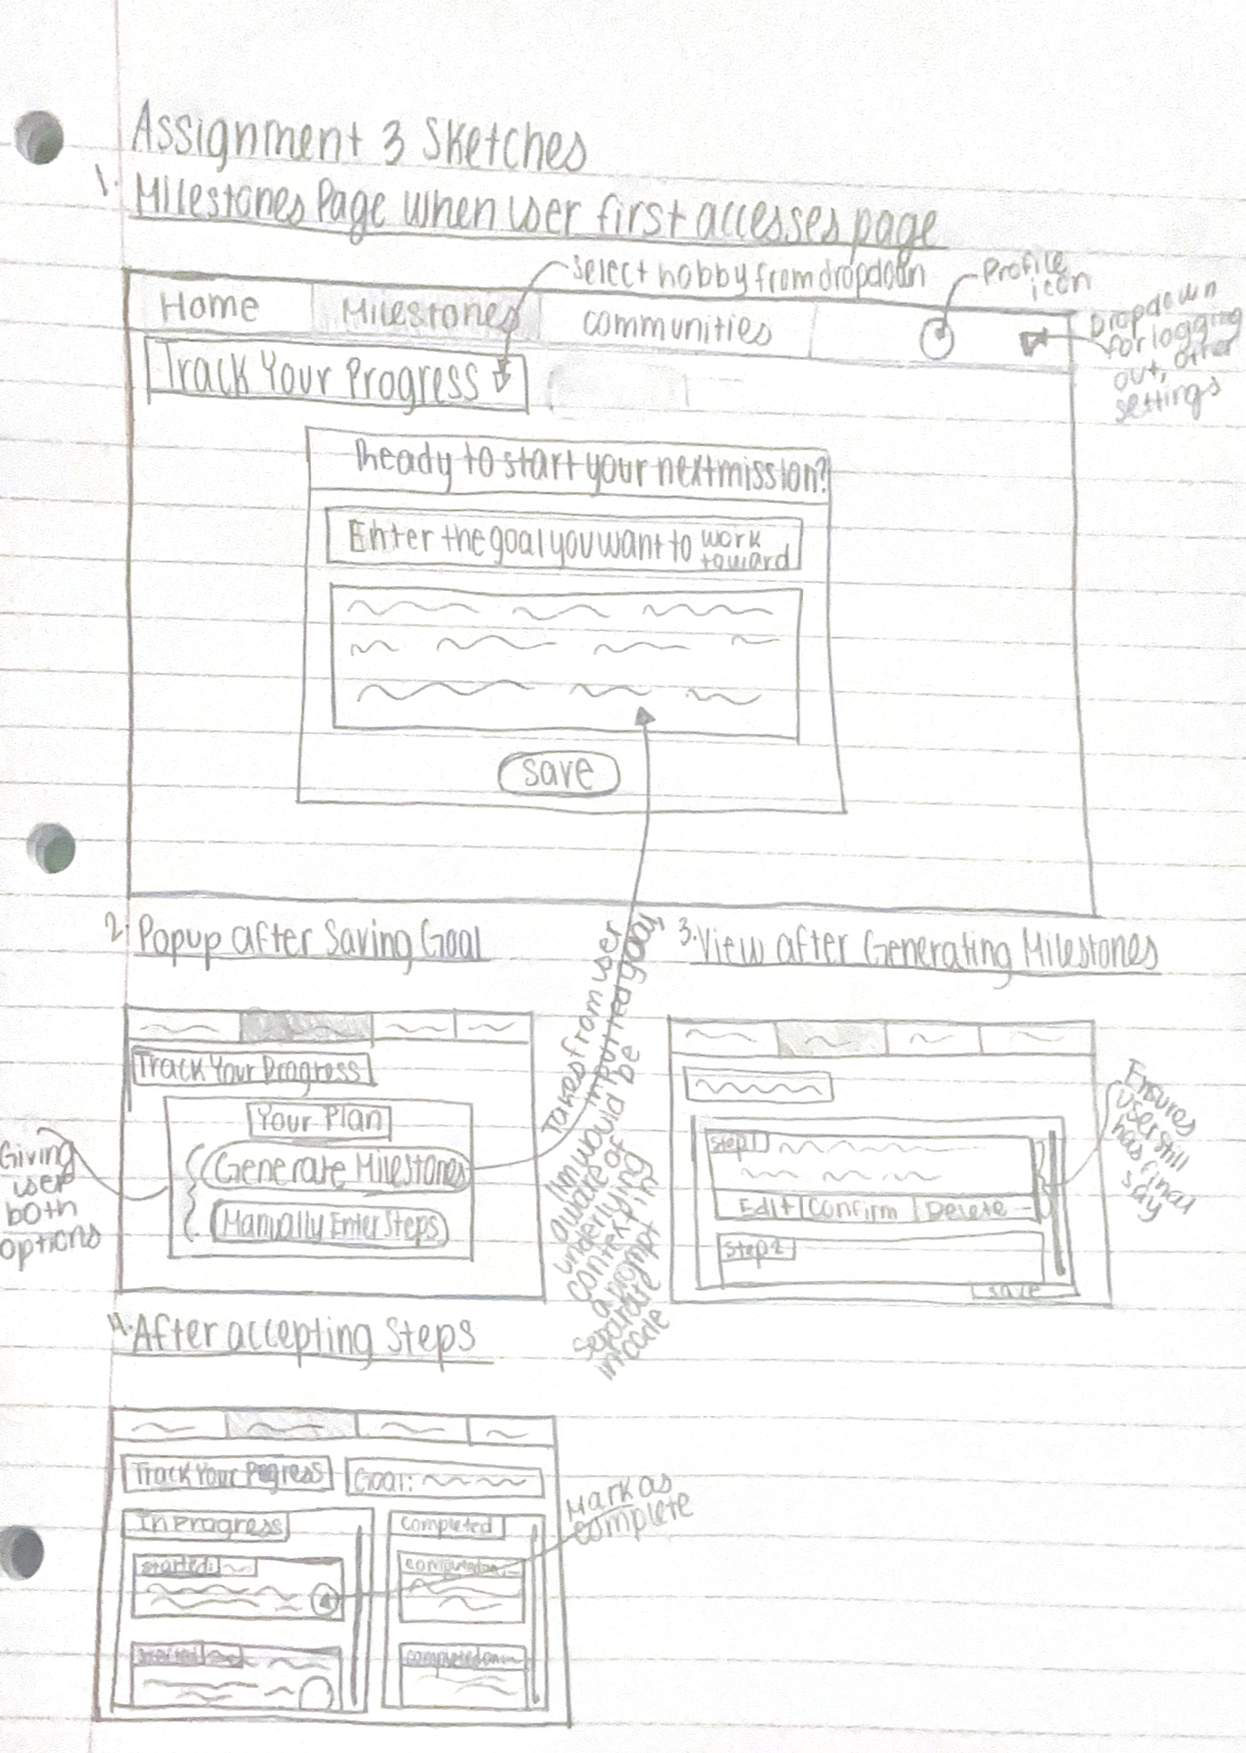 Assignment 3 Sketches
1. Milestones Page when user first accesses page
select hobby from dropdown
Profile
icon
Dropdown
for logging
out, other
settings
Home
Milestones
communities
Track Your Progress
Ready to start your next mission?
Enter the goal you want to work
toward
save
2. Popup after Saving Goal
Track Your Progress
Your Plan
Generate Milestones
Manually Enter Steps
Giving
user
both
options
Takes from user
inputted goal,
llm would be
aware of
underlying
context in
a prompt in
separate
mode
3. View after Generating Milestones
Step 1
Edit Confirm Delete
Step 2
save
Ensures
user still
has final
say
4. After accepting Steps
Track Your Pogress
Goal:
In Progress
started:
Completed
completed on
Mark as
complete